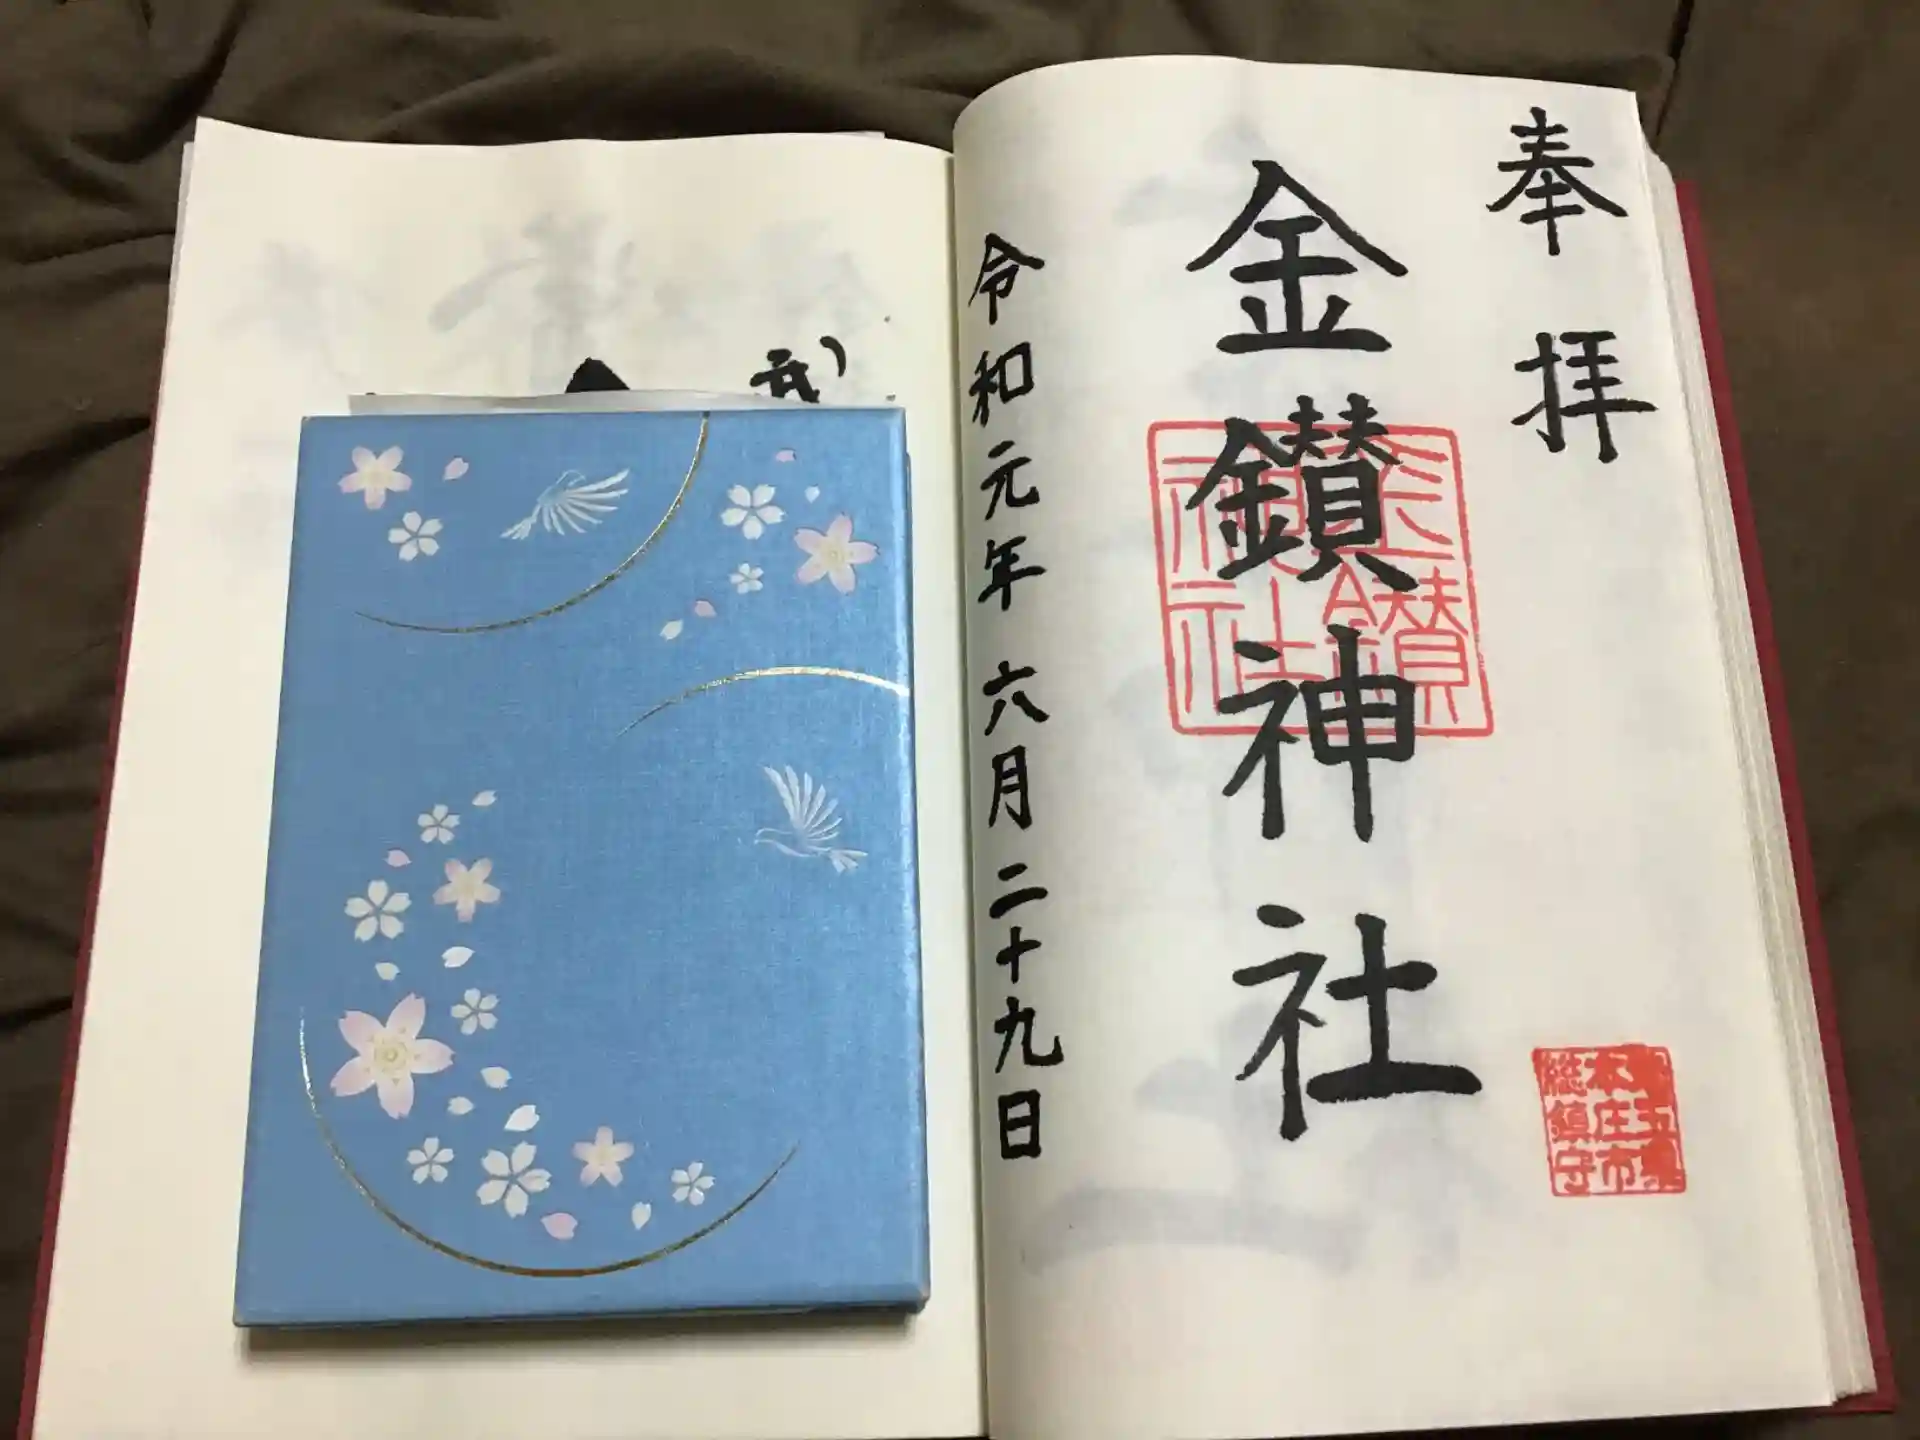 奉拝
金鑚神社
金鑚
神社
本庄市
総鎮守
令和元年六月二十九日
武